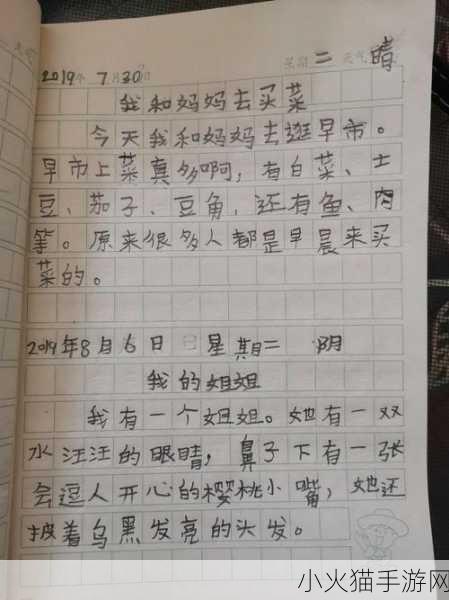 2019年 7月30日 星期二 天气晴
我和妈妈去买菜
今天我和妈妈去逛早市。
早市上菜真多啊，有白菜、土
豆、茄子、豆角，还有鱼、肉
等。原来很多人都是早晨来买
菜的。
2019年8月6日 星期二 阴
我的姐姐
我有一个姐姐。她有一双
水汪汪的眼睛，鼻子下有一张
会逗人开心的樱桃小嘴，她还
披着乌黑发亮的头发。
小火猫手游网